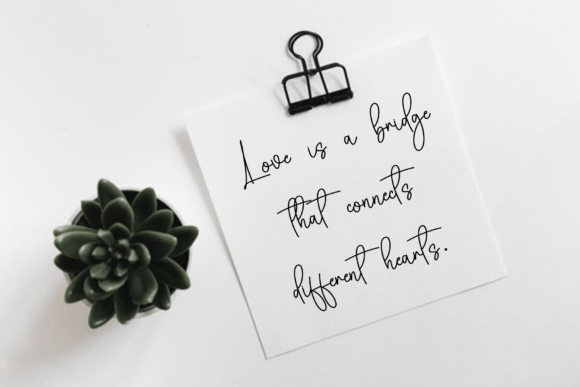 Love is a bridge
that connects
different hearts.